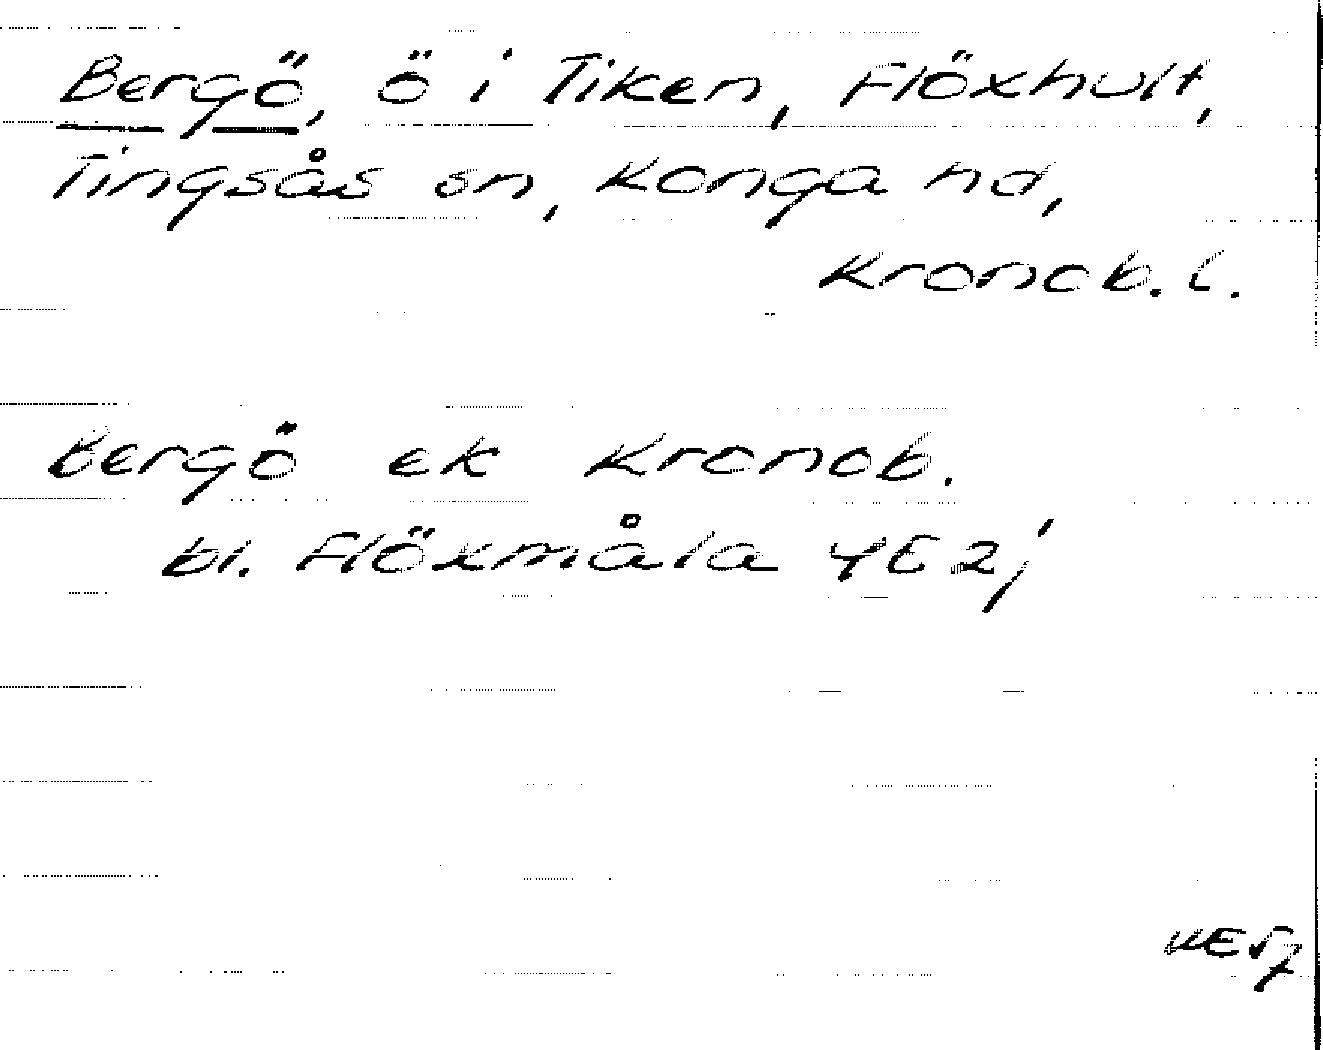 Bergö, ö i Tiken, Flöxhult,
Tingsås sn, Konga hd,
Kronob. l.
Bergö ek Kronob.
bl. Flöxmåla 4E2j